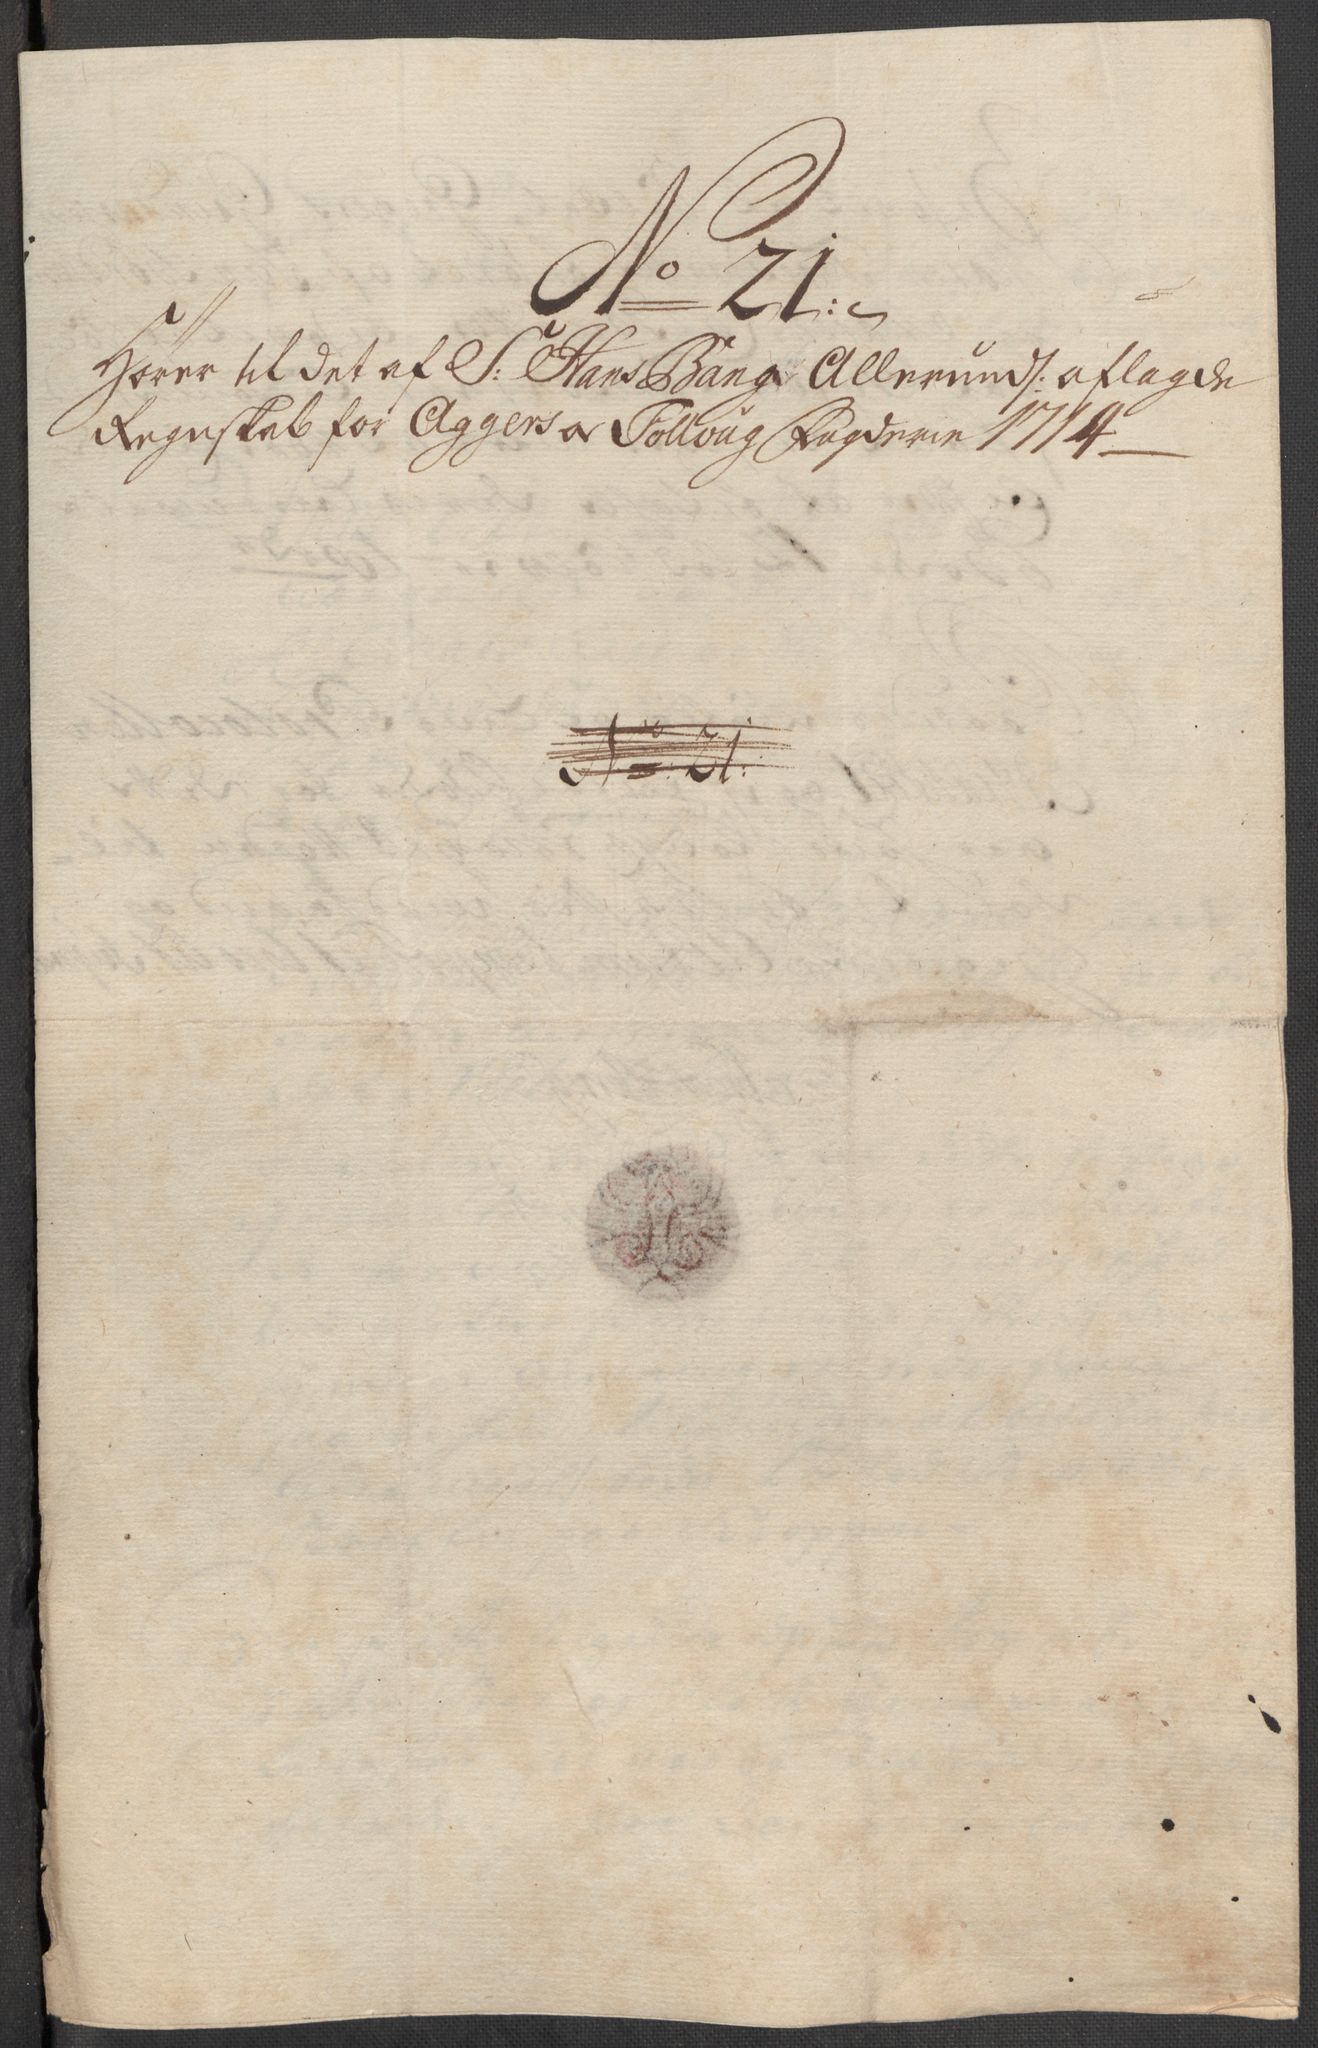 No 21:
Hører til det af Sr: Hans Bang Allerunds: aflagde
Regnskab for Aggers og Folloug Fogderie 1714
No 21: